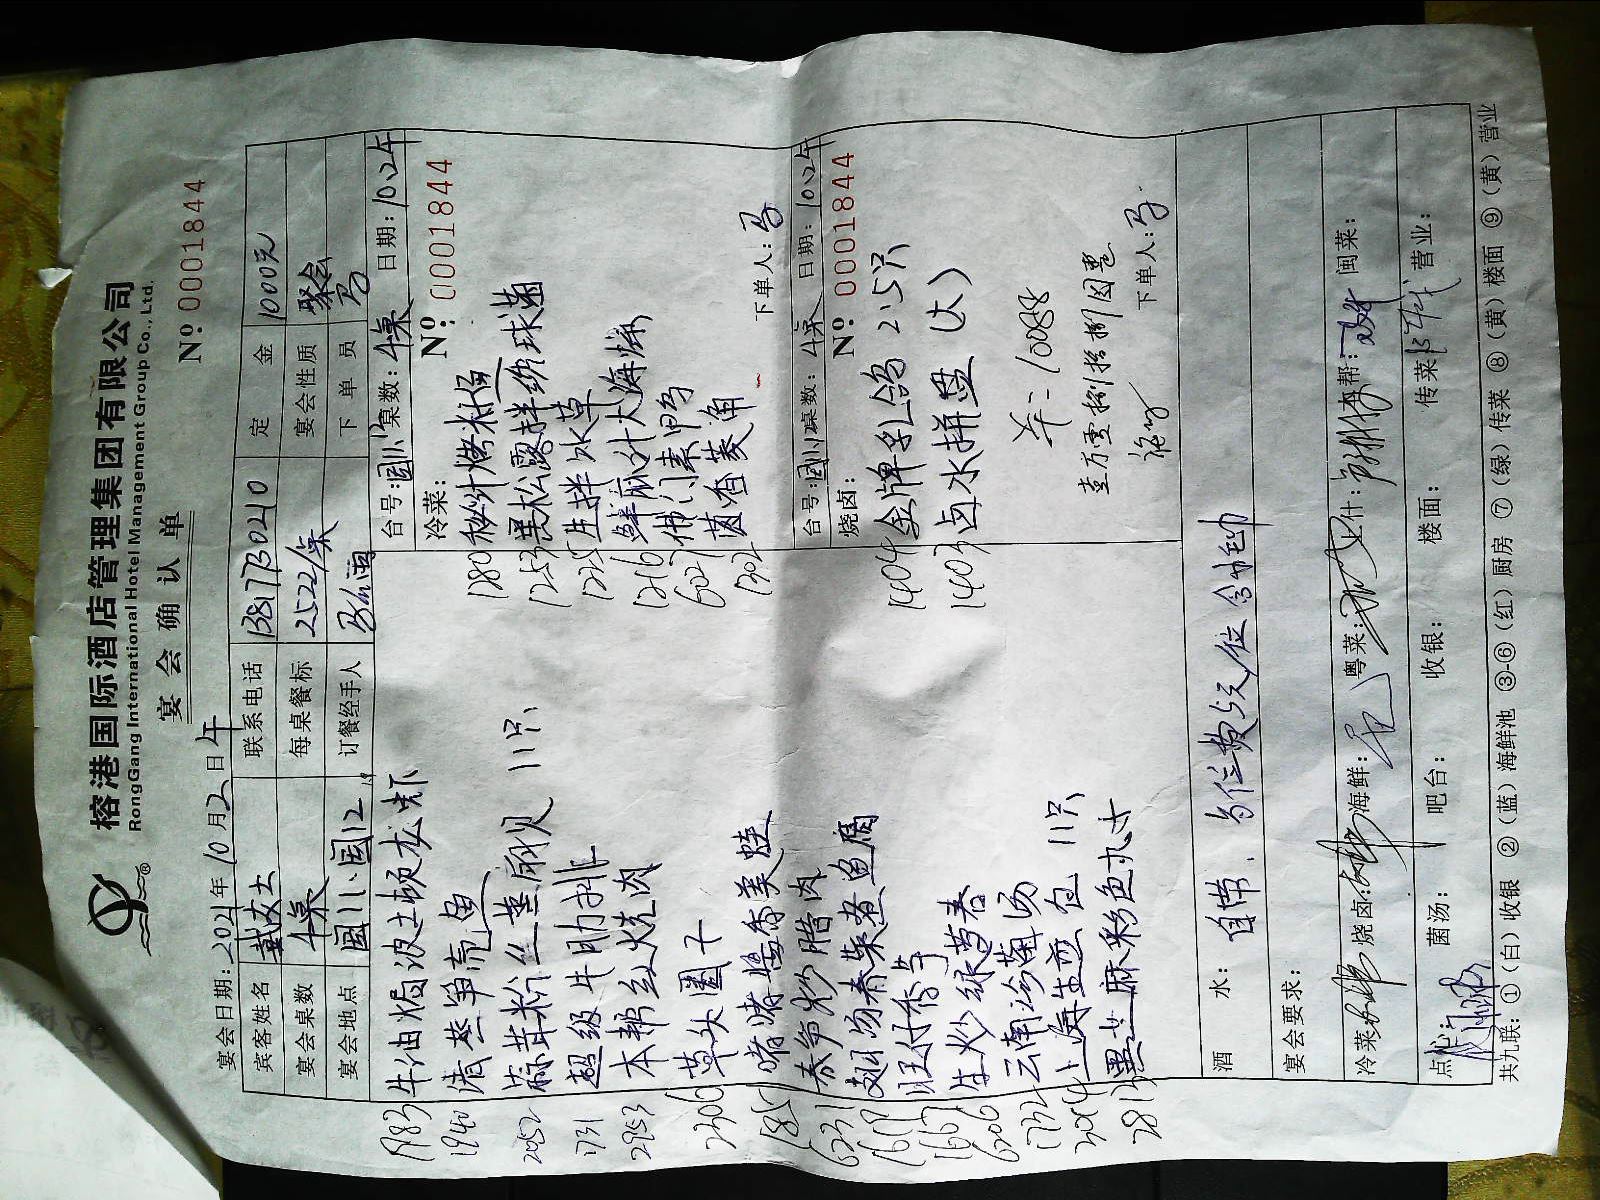 榕港国际酒店管理集团有限公司
RongGang International Hotel Management Group Co., Ltd.
宴会确认单
Nº 0001844
宴会日期:2021年10月2日午
宾客姓名 戴女士 联系电话 13817730210 定金 1000元
宴会桌数 4桌 每桌餐标 2522/桌 宴会性质 聚会
宴会地点 国11、国12 订餐经手人 下单员 马
1983 牛油焗波士顿龙虾
1940 清蒸笋壳鱼
2052 蒜茸粉丝蒸扇贝 11只
1731 超级牛肋排
2953 本帮红烧肉
2306 草头圈子
1851 啫啫酱香美蛙
6231 春笋炒腊肉
1619 菜煮鱼腐
1667 旺仔香芋
6206 生炒绿萝春
1732 云南冷菌汤
3054 上海生煎包 11只
2813 黑芝麻彩色
台号:国11、12 桌数:4桌 日期:10.2午
冷菜: Nº: 0001844
1280 秘汁烤
1253 黑松露拌绣球菌
1225 生拌冰草
1216 鲜麻汁大海螺
6021 佛门素鸭
1302 茴香菱角
下单人:马
台号:国11、12 桌数:4桌 日期:10.2午
烧卤: Nº: 0001844
1404 金牌乳鸽 2.5只
1403 卤水拼盘(大)
羊:10088
壹万零捌拾捌圆整
下单人:马
酒水: 自带、
宴会要求:
冷菜: 烧卤: 海鲜: 粤菜: 上什: 本帮: 闽菜:
点心: 菌汤: 吧台: 收银: 楼面: 传菜: 营业:
共九联:①(白)收银 ②(蓝)海鲜池 ③-⑥(红)厨房 ⑦(绿)传菜 ⑧(黄)楼面 ⑨(黄)营业